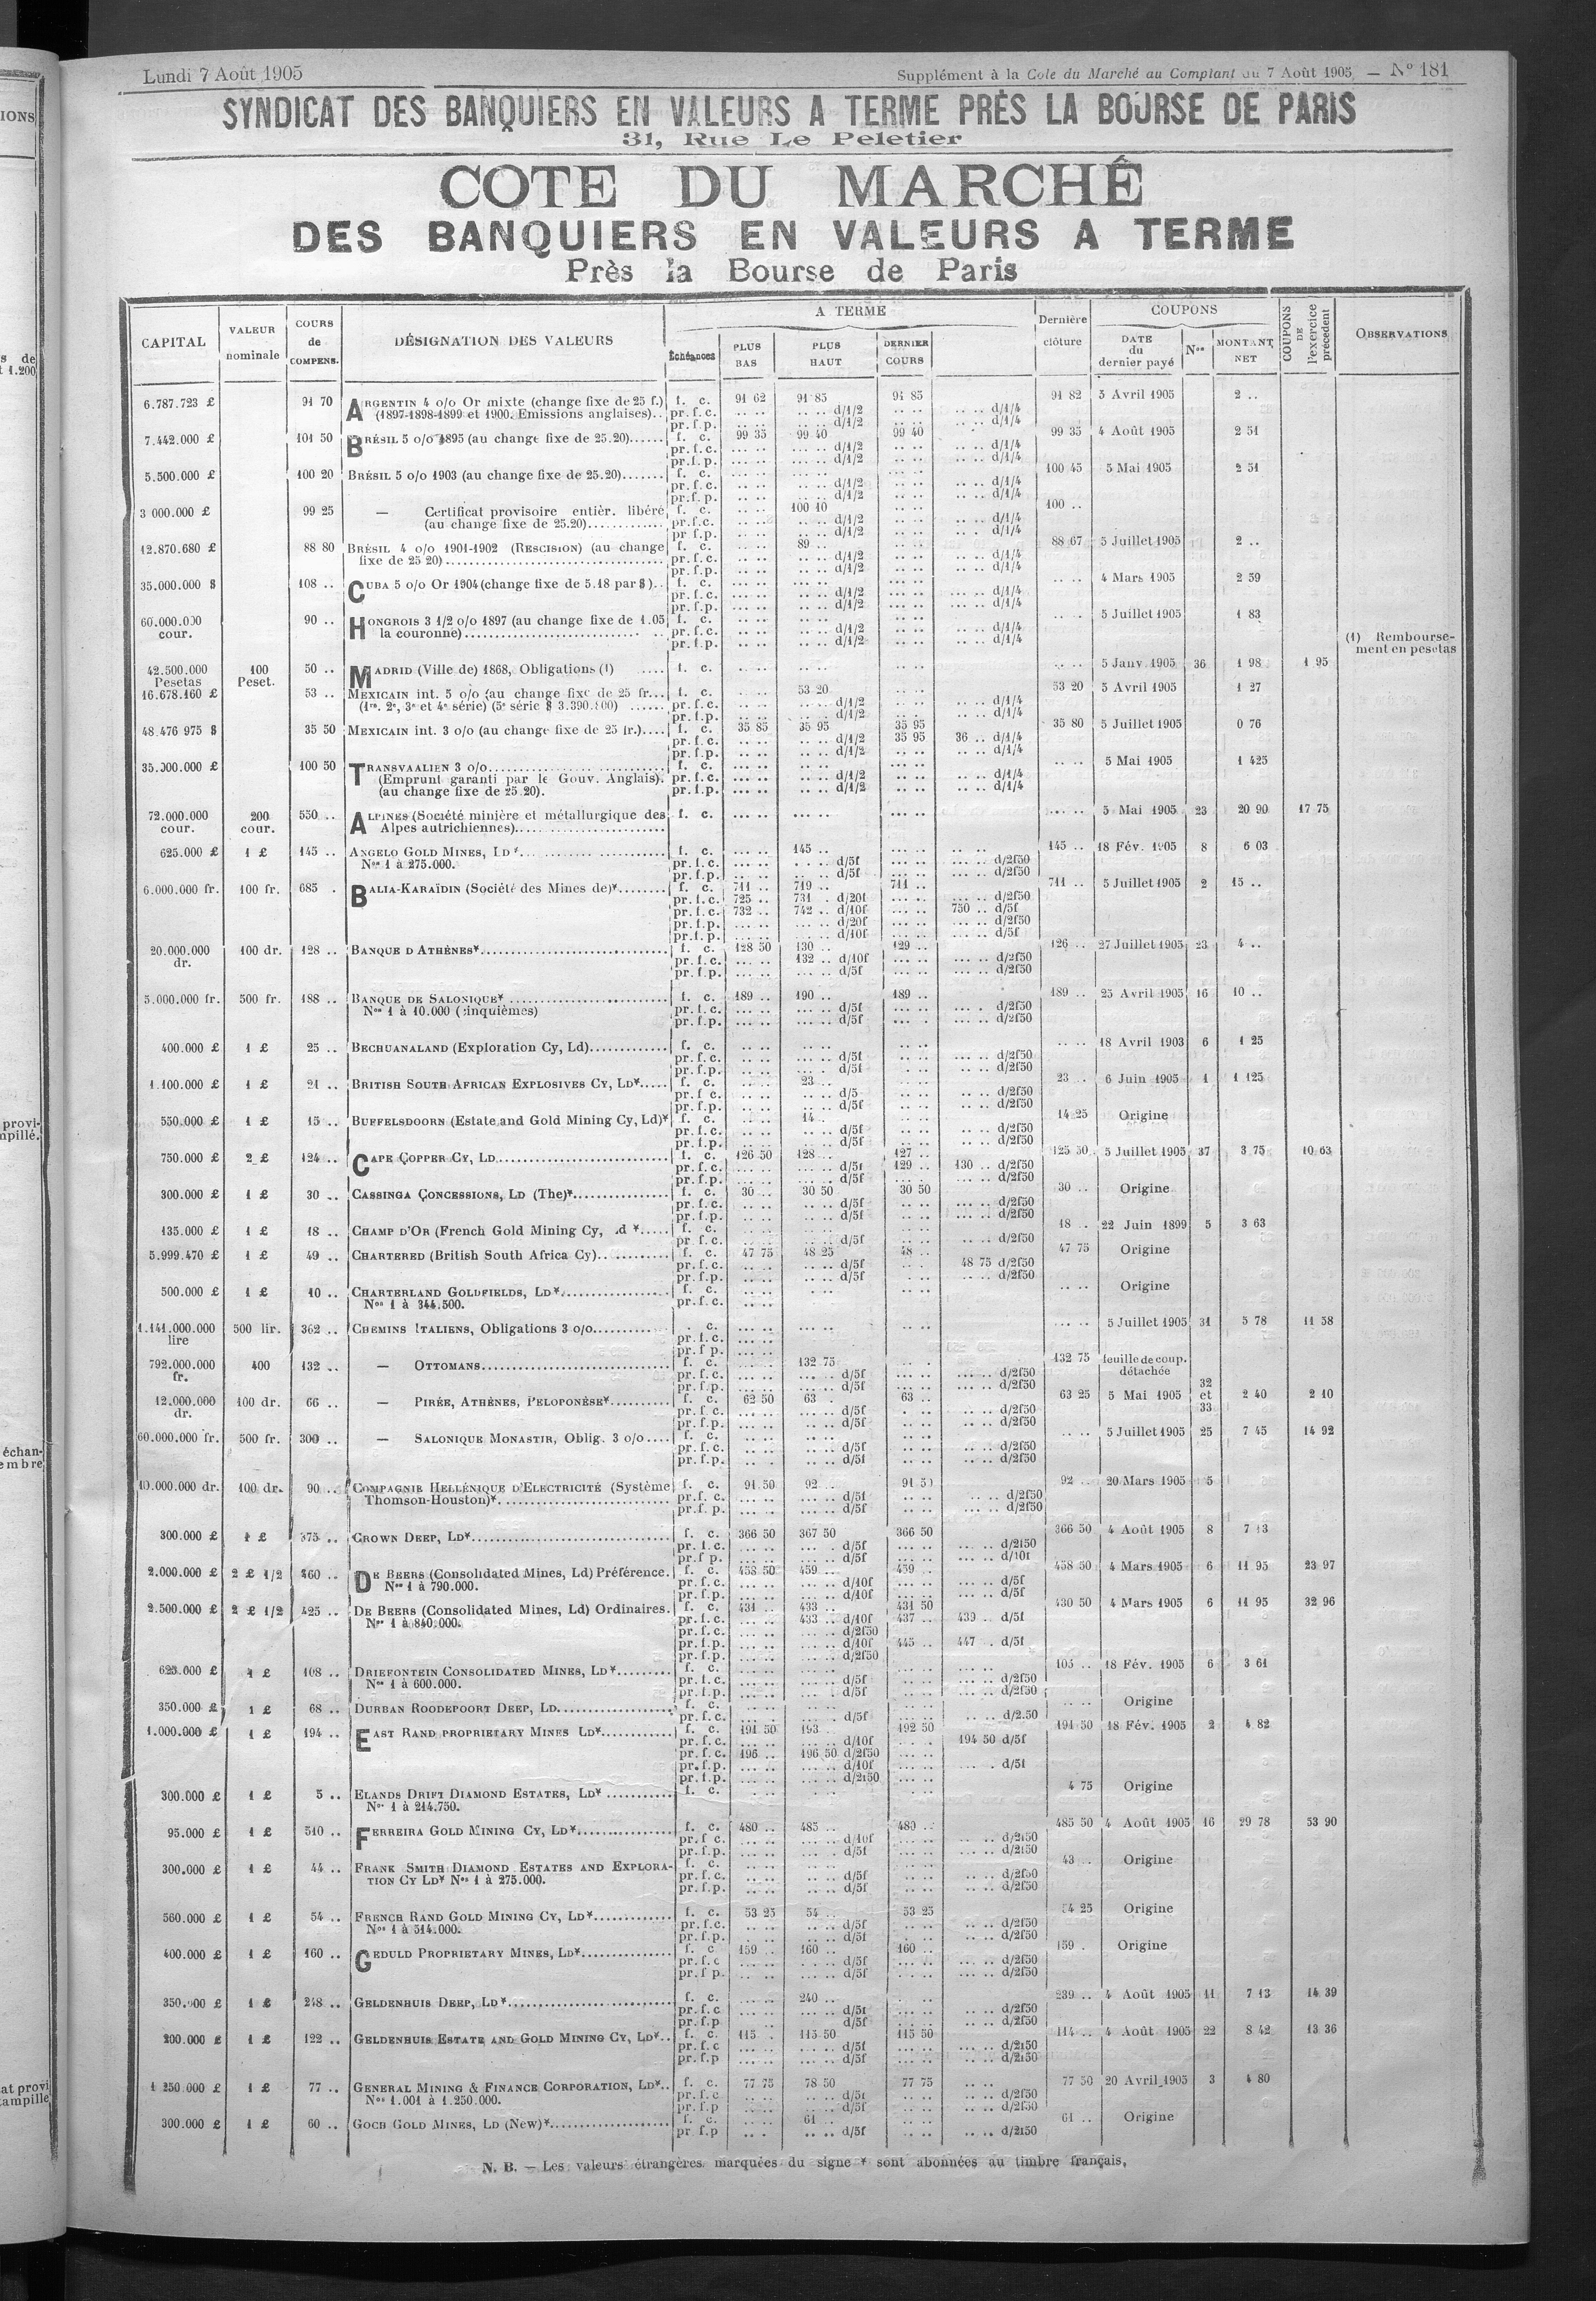 Lundi 7 Août 1905
Supplément à la Cote du Marché au Comptant du 7 Août 1905, — N° 181
SYNDICAT DES BANQUIERS EN VALEURS A TERME PRÈS LA BOURSE DE PARIS
31, Rue Le Peletier
COTE DU MARCHÉ
DES BANQUIERS EN VALEURS A TERME
Près la Bourse de Paris
CAPITAL VALEUR nominale COURS de COMPENS. DÉSIGNATION DES VALEURS A TERME Échéances PLUS BAS PLUS HAUT DERNIER COURS Dernière clôture COUPONS DATE du dernier payé Nos MONTANT NET COUPONS DE l'exercice précédent OBSERVATIONS
6.787.723 £ 91 70 ARGENTIN 4 o/o Or mixte (change fixe de 25 f.) f. c. 91 62 91 85 91 85 91 82 5 Avril 1905 2 ..
(1897-1898-1899 et 1900. Emissions anglaises).. pr. f. c. .. .. .. .. d/1/2 .. .. .. .. d/1/4
pr. f. p. .. .. .. .. d/1/2 .. .. .. .. d/1/4
7.442.000 £ 101 50 BRÉSIL 5 o/o 1895 (au change fixe de 25.20)...... f. c. 99 35 99 40 99 40 99 35 4 Août 1905 2 51
pr. f. c. .. .. .. .. d/1/2 .. .. .. .. d/1/4
pr. f. p. .. .. .. .. d/1/2 .. .. .. .. d/1/4
5.500.000 £ 100 20 BRÉSIL 5 o/o 1903 (au change fixe de 25.20)....... f. c. 100 45 5 Mai 1905 2 51
pr. f. c. .. .. .. .. d/1/2 .. .. .. .. d/1/4
pr. f. p. .. .. .. .. d/1/2 .. .. .. .. d/1/4
3 000.000 £ 99 25 — Certificat provisoire entièr. libéré f. c. .. .. 100 10 .. .. 100 ..
(au change fixe de 25.20)............. pr. f. c. .. .. .. .. d/1/2 .. .. .. .. d/1/4
pr. f. p. .. .. .. .. d/1/2 .. .. .. .. d/1/4
12.870.680 £ 88 80 BRÉSIL 4 o/o 1901-1902 (RESCISION) (au change f. c. .. .. 89 .. .. .. 88 67 5 Juillet 1905 2 ..
fixe de 25 20)................................ pr. f. c. .. .. .. .. d/1/2 .. .. .. .. d/1/4
pr. f. p. .. .. .. .. d/1/2 .. .. .. .. d/1/4
35.000.000 $ 108 .. CUBA 5 o/o Or 1904 (change fixe de 5.18 par $).. f. c. .. .. 4 Mars 1905 2 59
pr. f. c. .. .. .. .. d/1/2 .. .. .. .. d/1/4
pr. f. p. .. .. .. .. d/1/2 .. .. .. .. d/1/4
60.000.000 cour. 90 .. HONGROIS 3 1/2 o/o 1897 (au change fixe de 1.05 f. c. .. .. 5 Juillet 1905 1 83
la couronne)............................ pr. f. c. .. .. .. .. d/1/2 .. .. .. .. d/1/4
pr. f. p. .. .. .. .. d/1/2 .. .. .. .. d/1/4
(1) Remboursement en pesetas
42.500.000 Pesetas 100 Peset. 50 .. MADRID (Ville de) 1868, Obligations (1) .... f. c. .. .. 5 Janv. 1905 36 1 98 1 95
16.678.160 £ 53 .. MEXICAIN int. 5 o/o (au change fixe de 25 fr... f. c. .. .. 53 20 .. .. 53 20 5 Avril 1905 1 27
(1re. 2e, 3e et 4e série) (5e série $ 3.390.800) ...... pr. f. c. .. .. .. .. d/1/2 .. .. .. .. d/1/4
pr. f. p. .. .. .. .. d/1/2 .. .. .. .. d/1/4
48.476 975 $ 35 50 MEXICAIN int. 3 o/o (au change fixe de 25 fr.).... f. c. 35 85 35 95 35 95 35 80 5 Juillet 1905 0 76
pr. f. c. .. .. .. .. d/1/2 35 95 36 .. d/1/4
pr. f. p. .. .. .. .. d/1/2 .. .. .. .. d/1/4
35.000.000 £ 100 50 TRANSVAALIEN 3 o/o......................... f. c. .. .. 5 Mai 1905 1 425
(Emprunt garanti par le Gouv. Anglais). pr. f. c. .. .. .. .. d/1/2 .. .. .. .. d/1/4
(au change fixe de 25.20). pr. f. p. .. .. .. .. d/1/2 .. .. .. .. d/1/4
72.000.000 cour. 200 cour. 550 .. ALPINES (Société minière et métallurgique des f. c. .. .. 5 Mai 1905 23 20 90 17 75
Alpes autrichiennes)........................
625.000 £ 1 £ 145 .. ANGELO GOLD MINES, LD*... f. c. .. .. 145 .. .. .. 145 .. 18 Fév. 1905 8 6 03
Nos 1 à 275.000. pr. f. c. .. .. .. .. d/5f .. .. .. .. d/2f50
pr. f. p. .. .. .. .. d/5f .. .. .. .. d/2f50
6.000.000 fr. 100 fr. 685 . BALIA-KARAÏDIN (Société des Mines de)*........ f. c. 711 .. 719 .. 711 .. 711 .. 5 Juillet 1905 2 15 ..
pr. f. c. 725 .. 731 . d/20f .. .. .. .. d/2f50
pr. f. c. 732 .. 742 .. d/10f .. .. 750 .. d/5f
pr. f. p. .. .. .. .. d/20f .. .. .. .. d/2f50
pr. f. p. .. .. .. .. d/10f .. .. .. .. d/5f
20.000.000 dr. 100 dr. 128 .. BANQUE D'ATHÈNES*........................... f. c. 128 50 130 .. 129 .. 126 .. 27 Juillet 1905 23 4 ..
pr. f. c. .. .. 132 .. d/10f .. .. .. .. d/2f50
pr. f. p. .. .. .. .. d/5f .. .. .. .. d/2f50
5.000.000 fr. 500 fr. 188 .. BANQUE DE SALONIQUE* ....................... f. c. 189 .. 190 .. 189 .. 189 .. 25 Avril 1905 16 10 ..
Nos 1 à 10.000 (cinquièmes) pr. f. c. .. .. .. .. d/5f .. .. .. .. d/2f50
pr. f. p. .. .. .. .. d/5f .. .. .. .. d/2f50
400.000 £ 1 £ 25 .. BECHUANALAND (Exploration Cy, Ld)............. f. c. .. .. 18 Avril 1903 6 1 25
pr. f. c. .. .. .. .. d/5f .. .. .. .. d/2f50
pr. f. p. .. .. .. .. d/5f .. .. .. .. d/2f50
1.100.000 £ 1 £ 21 .. BRITISH SOUTH AFRICAN EXPLOSIVES CY, LD*..... f. c. .. .. 23 .. .. .. 23 .. 6 Juin 1905 1 1 125
pr. f. c. .. .. .. .. d/5 .. .. .. .. d/2f50
pr. f. p. .. .. .. .. d/5f .. .. .. .. d/2f50
550.000 £ 1 £ 15 .. BUFFELSDOORN (Estate and Gold Mining Cy, Ld)* f. c. .. .. 14 . .. .. 14 25 Origine
pr. f. c. .. .. .. .. d/5f .. .. .. .. d/2f50
pr. f. p. .. .. .. .. d/5f .. .. .. .. d/2f50
750.000 £ 2 £ 124 .. CAPE COPPER CY, LD........................... f. c. 126 50 128 .. 127 .. 125 50 5 Juillet 1905 37 3 75 10 63
pr. f. c. .. .. .. .. d/5f 129 .. 130 .. d/2f50
pr. f. p. .. .. .. .. d/5f .. .. .. .. d/2f50
300.000 £ 1 £ 30 .. CASSINGA CONCESSIONS, LD (The)*................ f. c. 30 .. 30 50 30 50 30 .. Origine
pr. f. c. .. .. .. .. d/5f .. .. .. .. d/2f50
pr. f. p. .. .. .. .. d/5f .. .. .. .. d/2f50
135.000 £ 1 £ 18 .. CHAMP D'OR (French Gold Mining Cy, Ld *..... f. c. 18 .. 22 Juin 1899 5 3 63
pr. f. c. .. .. .. .. d/5f .. .. .. .. d/2f50
5.999.470 £ 1 £ 49 .. CHARTERED (British South Africa Cy)............ f. c. 47 75 48 25 48 .. 47 75 Origine
pr. f. c. .. .. .. .. d/5f .. . 48 75 d/2f50
pr. f. p. .. .. .. .. d/5f .. .. .. .. d/2f50
500.000 £ 1 £ 10 .. CHARTERLAND GOLDFIELDS, LD*................. f. c. .. .. Origine
Nos 1 à 344.500. pr. f. c. .. ..
1.141.000.000 lire 500 lir. 362 .. CHEMINS ITALIENS, Obligations 3 o/o............ . c. .. .. 5 Juillet 1905 31 5 78 11 58
pr. f. c. .. ..
pr. f. p. .. ..
792.000.000 fr. 400 132 .. — OTTOMANS............................ f. c. .. .. 132 75 .. . 132 75 feuille de coup. détachée
pr. f. c. .. .. .. .. d/5f .. .. .. .. d/2f50
pr. f. p. .. .. .. .. d/5f .. .. .. .. d/2f50
12.000.000 dr. 100 dr. 66 .. — PIRÉE, ATHÈNES, PELOPONÈSE*.......... f. c. 62 50 63 . 63 .. 63 25 5 Mai 1905 32 et 33 2 40 2 10
pr. f. c. .. .. .. .. d/5f .. .. .. .. d/2f50
pr. f. p. .. .. .. .. d/5f .. .. .. .. d/2f50
60.000.000 fr. 500 fr. 300 .. — SALONIQUE MONASTIR, Oblig. 3 o/o.... f. c. .. .. 5 Juillet 1905 25 7 45 14 92
pr. f. c. .. .. .. .. d/5f .. .. .. .. d/2f50
pr. f. p. .. .. .. .. d/5f .. .. .. .. d/2f50
10.000.000 dr. 100 dr. 90 .. COMPAGNIE HELLÉNIQUE D'ELECTRICITÉ (Système f. c. 91 50 92 .. 91 50 92 .. 20 Mars 1905 5
Thomson-Houston)*........................ pr. f. c. .. .. .. .. d/5f .. .. .. .. d/2f50
pr. f. p. .. .. .. .. d/5f .. .. .. .. d/2f50
300.000 £ 1 £ 375 .. CROWN DEEP, LD*............................. f. c. 366 50 367 50 366 50 366 50 4 Août 1905 8 7 13
pr. f. c. .. .. .. .. d/5f .. .. .. .. d/2f50
pr. f. p. .. .. .. .. d/5f .. .. .. .. d/10f
2.000.000 £ 2 £ 1/2 460 .. DE BEERS (Consolidated Mines, Ld) Préférence. f. c. 458 50 459 .. 459 .. 458 50 4 Mars 1905 6 11 95 23 97
Nos 1 à 790.000. pr. f. c. .. .. .. .. d/10f .. .. .. .. d/5f
pr. f. p. .. .. .. .. d/10f .. .. .. .. d/5f
2.500.000 £ 2 £ 1/2 425 .. DE BEERS (Consolidated Mines, Ld) Ordinaires. f. c. 431 .. 433 .. 431 50 430 50 4 Mars 1905 6 11 95 32 96
Nos 1 à 840.000. pr. f. c. .. .. 433 .. d/10f 437 .. 439 .. d/5f
pr. f. c. .. .. .. .. d/2f50
pr. f. p. .. .. .. .. d/10f 445 .. 447 . d/5f
pr. f. p. .. .. .. .. d/2f50
625.000 £ 1 £ 108 .. DRIEFONTEIN CONSOLIDATED MINES, LD*......... f. c. 105 .. 18 Fév. 1905 6 3 61
Nos 1 à 600.000. pr. f. c. .. .. .. .. d/5f .. .. .. .. d/2f50
pr. f. p. .. .. .. .. d/5f .. .. .. .. d/2f50
350.000 £ 1 £ 68 .. DURBAN ROODEPOORT DEEP, LD................... f. c. .. .. Origine
pr. f. c. .. .. .. .. d/5f .. .. .. .. d/2.50
1.000.000 £ 1 £ 194 .. EAST RAND PROPRIETARY MINES LD*............ f. c. 191 50 193 .. 192 50 191 50 18 Fév. 1905 2 4 82
pr. f. c. .. .. .. .. d/10f .. . 194 50 d/5f
pr. f. c. 196 .. 196 50 d/2f50 .. ..
pr. f. p. .. .. .. .. d/10f .. .. . d/5f
pr. f. p. .. .. .. .. d/2f50 .. ..
300.000 £ 1 £ 5 .. ELANDS DRIFT DIAMOND ESTATES, LD* ........... f. c. 4 75 Origine
Nos 1 à 214.750.
95.000 £ 1 £ 510 .. FERREIRA GOLD MINING CY, LD*................ f. c. 480 .. 485 .. 480 .. 485 50 4 Août 1905 16 29 78 53 90
pr. f. c. .. .. .. .. d/10f .. .. .. .. d/2f50
pr. f. p. .. .. .. .. d/5f .. .. .. .. d/2f50
300.000 £ 1 £ 44 .. FRANK SMITH DIAMOND ESTATES AND EXPLORA- f. c. 43 .. Origine
TION CY LD* Nos 1 à 275.000. pr. f. c. .. .. .. .. d/5f .. .. .. .. d/2f50
pr. f. p. .. .. .. .. d/5f .. .. .. .. d/2f50
560.000 £ 1 £ 54 .. FRENCH RAND GOLD MINING CY, LD*............. f. c. 53 25 54 .. 53 25 54 25 Origine
Nos 1 à 514.000. pr. f. c. .. .. .. .. d/5f .. .. .. .. d/2f50
pr. f. p. .. .. .. .. d/5f .. .. .. .. d/2f50
400.000 £ 1 £ 160 .. GEDULD PROPRIETARY MINES, LD*............... f. c 159 .. 160 .. 160 .. 159 . Origine
pr. f. c .. .. .. .. d/5f .. .. .. .. d/2f50
pr. f p. .. .. .. .. d/5f .. .. .. .. d/2f50
350.000 £ 1 £ 248 .. GELDENHUIS DEEP, LD*........................ f. c. .. .. 240 .. 239 .. 4 Août 1905 11 7 13 14 39
pr. f. c .. .. .. .. d/5f .. .. .. .. d/2f50
pr. f. p .. .. d/5f .. .. .. .. d/2f50
200.000 £ 1 £ 122 .. GELDENHUIS ESTATE AND GOLD MINING CY, LD*.. f. c. 115 . 115 50 115 50 114 .. 4 Août 1905 22 8 42 13 36
pr. f. c .. .. .. .. d/5f .. .. .. .. d/2f50
pr. f. p .. .. .. .. d/5f .. .. .. .. d/2f50
1 250.000 £ 1 £ 77 .. GENERAL MINING & FINANCE CORPORATION, LD*.. f. c. 77 75 78 50 77 75 .. .. 77 50 20 Avril 1905 3 4 80
Nos 1.001 à 1.250.000. pr. f. c .. .. .. .. d/5f .. .. .. .. d/2f50
pr. f. p .. .. .. .. d/5f .. .. .. .. d/2f50
300.000 £ 1 £ 60 .. GOCH GOLD MINES, LD (New)*.................... f. c. .. .. 61 .. 61 .. Origine
pr f. p .. . .. .. d/5f .. .. .. .. d/2f50
N. B. — Les valeurs étrangères marquées du signe * sont abonnées au timbre français.